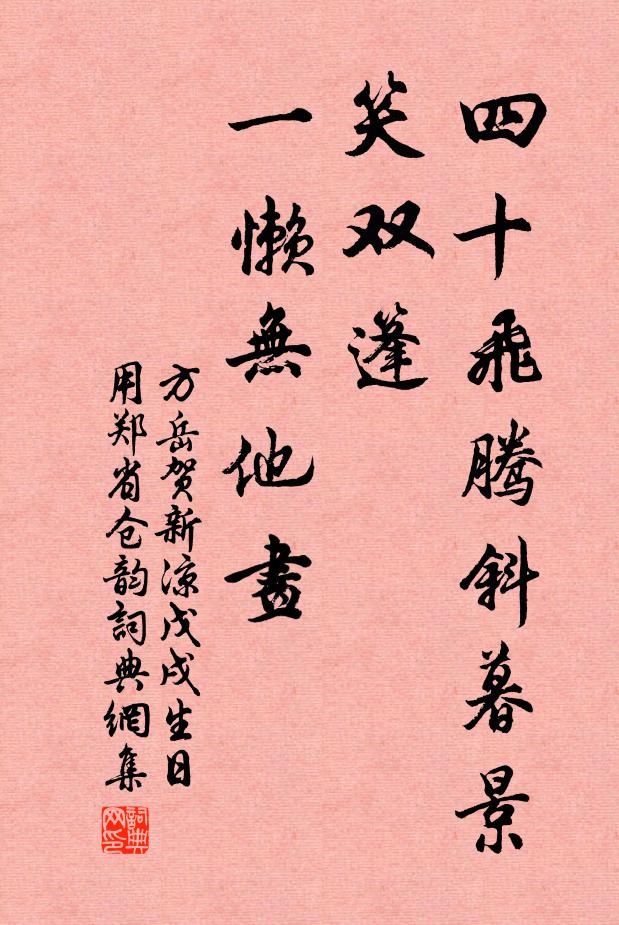 四十飛騰斜暮景
笑双篷
一懒無他畫
方岳贺新凉戊戌生日
用郑省仓韵詞典網集
詞典
网印